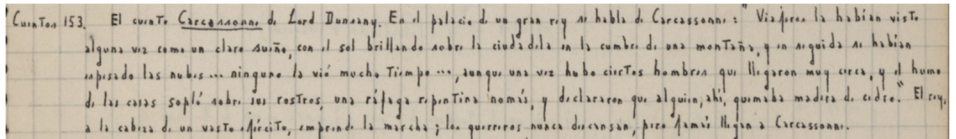 Cuentos 153. El cuento Carcassonne de Lord Dunsany. En el palacio de un gran rey se habla de Carcassonne: "Viajeros la habían visto
alguna vez como un claro sueño, con el sol brillando sobre la ciudadela en la cumbre de una montaña, y en seguida se habían
espesado las nubes... ninguno la vió mucho tiempo..., aunque una vez hubo ciertos hombres que llegaron muy cerca, y el humo
de las casas sopló sobre sus rostros, una ráfaga repentina nomás, y declararon que alguien, ahí, quemaba madera de cedro." El rey,
a la cabeza de un vasto ejército, emprende la marcha; los guerreros nunca descansan, pero jamás llegan a Carcassonne.